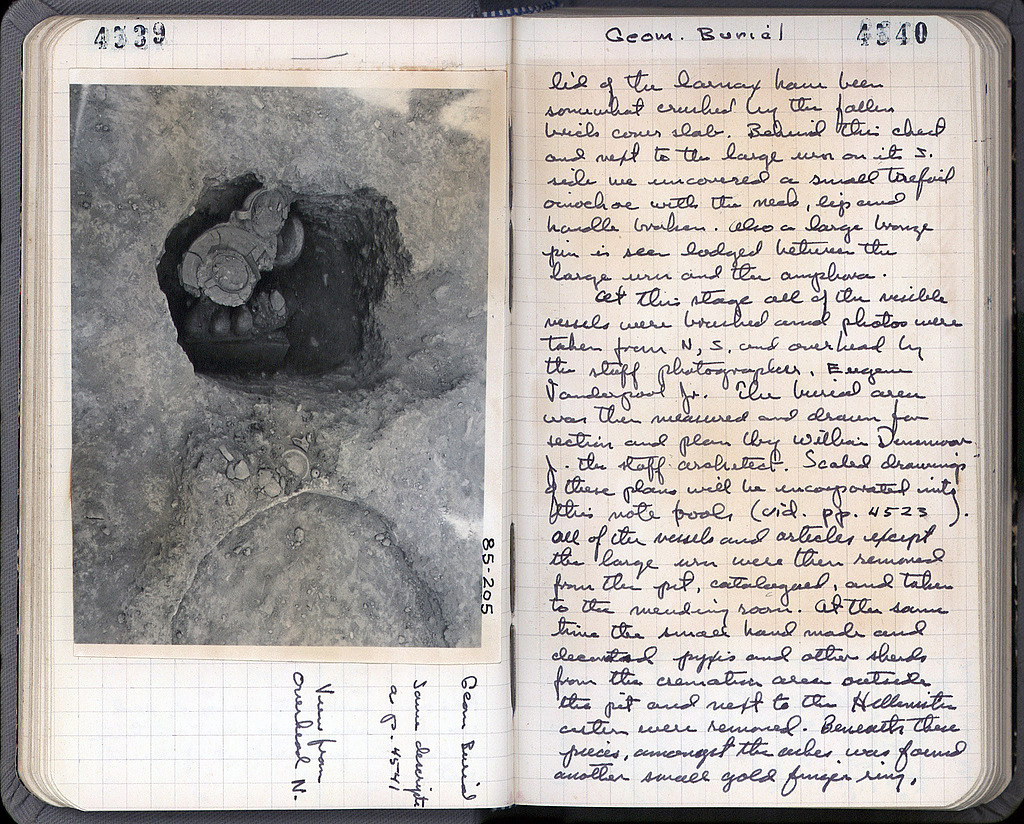 4339
85-205
Geom Burial
Same descript
as p. 4541
View from
overhead N.
Geom. Burial
4340
lid of the larnax have been
somewhat crushed by the fallen
brick cover slab. Behind this chest
and next to the large urn on its S.
side we uncovered a small trefoil
oinochoe with the neck, lip and
handle broken. Also a large bronze
pin is seen lodged between the
large urn and the amphora.
At this stage all of the visible
vessels were brushed and photos were
taken from N, S. and overhead by
the staff photographer, Eugene
Vanderpool Jr. The burial area
was then measured and drawn for
section and plan by William Dinsmoor
Jr. the staff architect. Scaled drawings
of these plans will be incorporated into
this note book (vid. pp. 4523 ).
All of the vessels and articles except
the large urn were then removed
from the pit, catalogued, and taken
to the mending room. At the same
time the small hand made and
decorated pyxis and other sherds
from the cremation area outside
the pit and next to the Hellenistic
cistern were removed. Beneath these
pieces, amongst the ashes was found
another small gold finger ring.